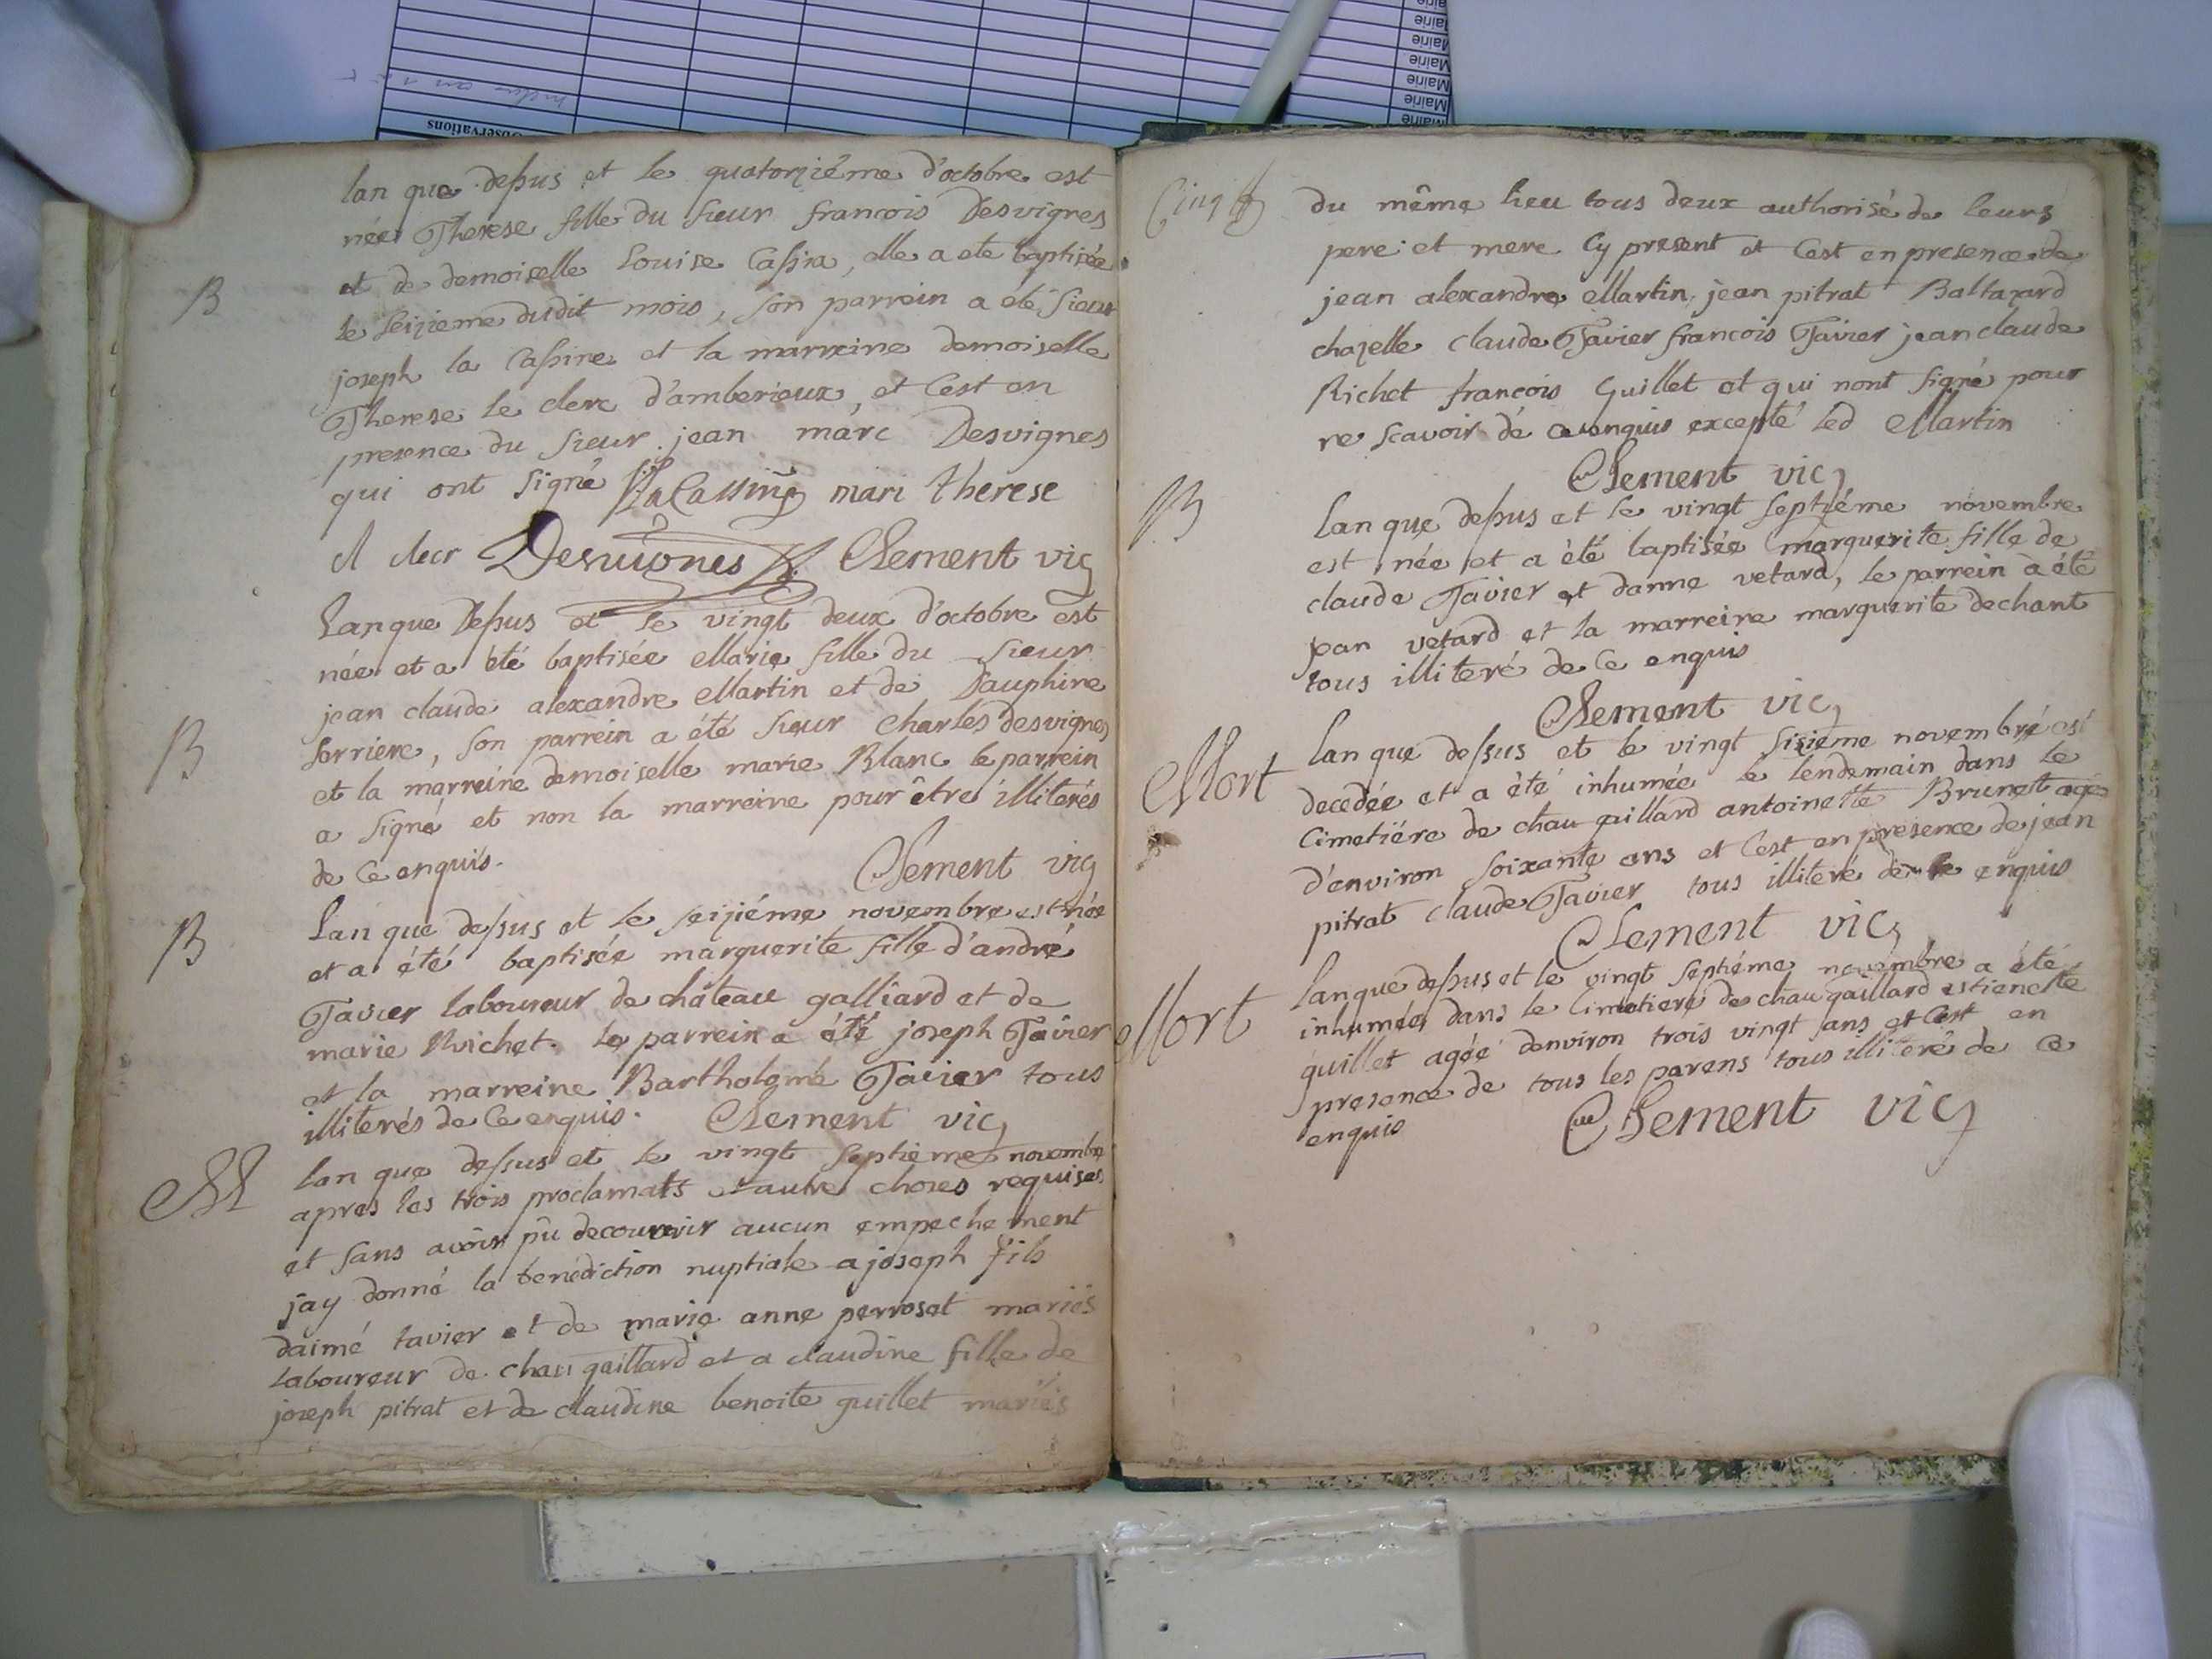 lan que dessus et le quatorziéme d'octobre est
née Therese fille du sieur francois Desvignes
et de demoiselle Louise Cassina, elle a eté baptisée
B
le seizieme dudit mois, son parrein a été sieur
joseph la Cassine et la marreine demoiselle
Therese le clerc d'amberieux, et cest en
presence du sieur jean marc Desvignes
qui ont signé LaCassine mari therese
Desvignes Clement vic
Lan que dessus et le vingt deux d'octobre est
née et a été baptisée Marie fille du sieur
jean claude alexandre Martin et de Dauphine
B
ferriere, son parrein a été sieur charles desvignes
et la marreine demoiselle marie Blanc le parrein
a signé et non la marreine pour être illiterés
de ce enquis. Clement vic
Lan que dessus et le seiziéme novembre est née
B
et a été baptisée marguerite fille d'andré
Tavier laboureur de château galliard et de
marie Richet. le parrein a été joseph Tavier
et la marreine Bartholomé Tavier tous
illiterés de ce enquis. Clement vic
lan que dessus et le vingt septieme novembre
M
apres les trois proclamats et autre choses requises
et sans avoir pû decouvrir aucun empechement
jay donné la benédiction nuptiale a joseph fils
daimé tavier et de marie anne perroset mariés
laboureur de chau gaillard et a claudine fille de
joseph pitrat et de claudine benoite guillet mariés
du même lieu tous deux authorisé de leurs
pere et mere cy present et cest en presence de
jean alexandre Martin, jean pitrat Baltazard
chazelle claude Tavier francois Tavier jean claude
Richet francois Guillet et qui nont signé pour
ne scavoir dé ce enquis excepté led Martin
Clement vic
B
lan que dessus et le vingt septiéme novembre
est née et a été baptisée marguerite fille de
claude Tavier et danne vetard, le parrein a été
jean vetard et la marreine marguerite dechant
tous illiteré de ce enquis
Clement vic
lan que dessus et le vingt sizieme novembre est
Mort
decedée et a été inhumée le lendemain dans le
cimetiére de chau gaillard antoinette Brunet agée
d'environ soixante ans et cest en presence de jean
pitrat claude Tavier tous illiteré de ce enquis
Clement vic
lan que dessus et le vingt septiéme novembre a été
Mort
inhumée dans le cimetieré de chau gaillard estienette
guillet agée denviron trois vingt ans et cest en
presence de tous les parens tous illiteré de ce
enquis Clement vic
Observations
Mairie
Mairie
Mairie
Mairie
Mairie
Mairie